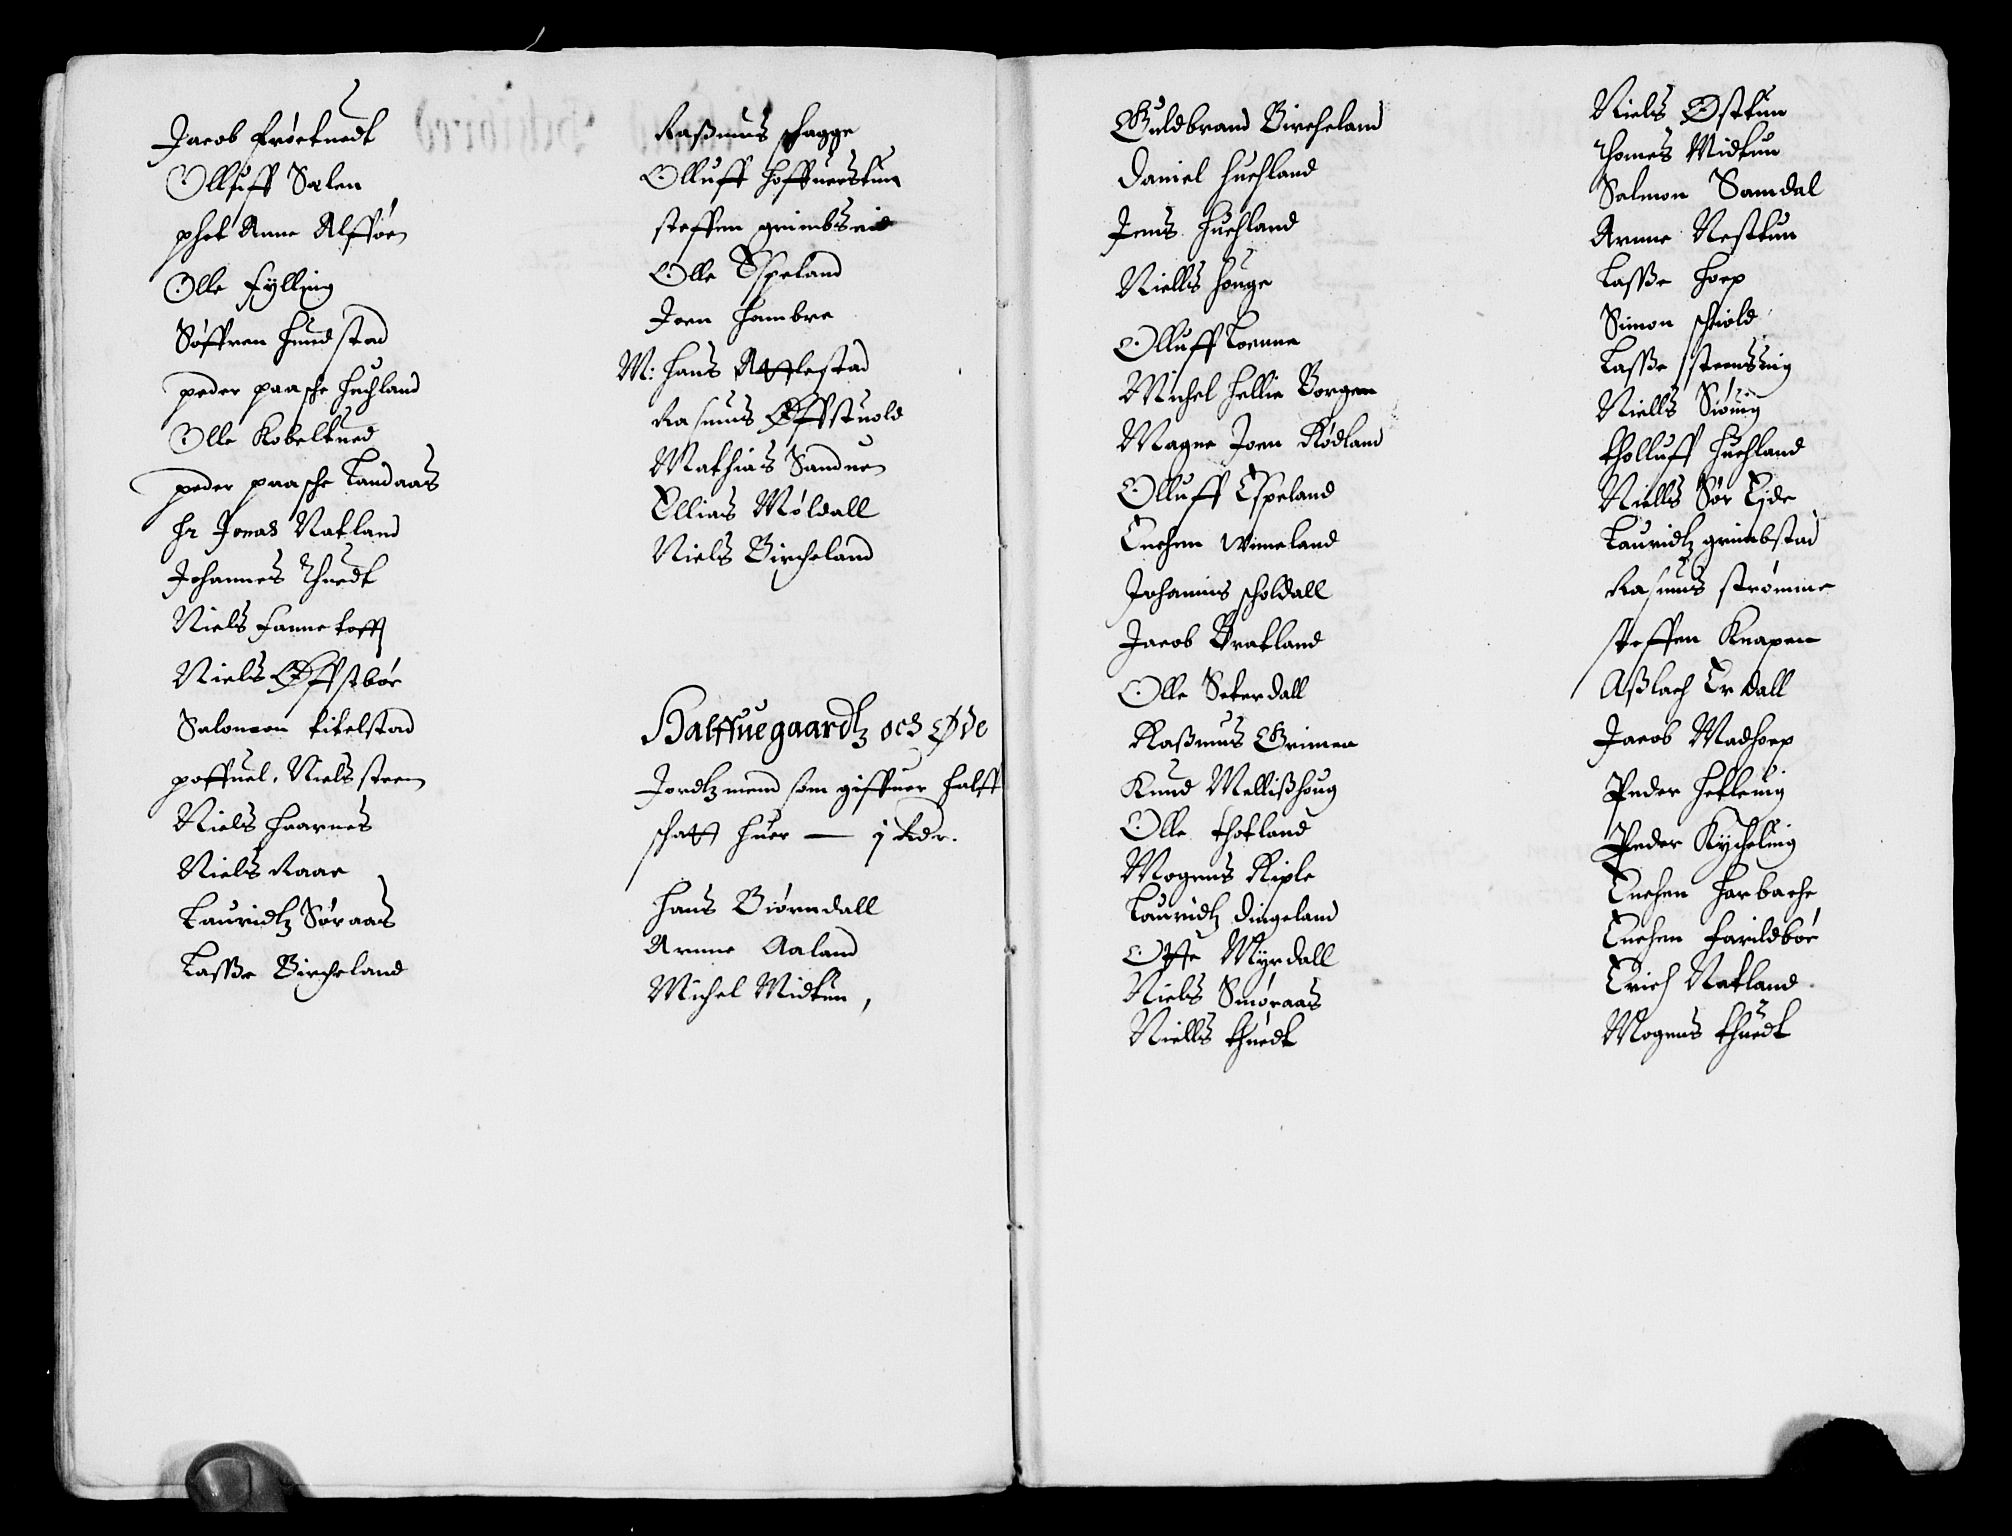 Jacob Frøeknedt
Olluff Sælen
phet Anne Alfføen
Olle Fylling
Søffren Hundstad
peder paasche Huchland
Olle Kobeltued
peder paasche Landaas
Hr Jonas Natland
Johannes Thuedt
Niels Fannetofft
Niels Øffstbøe
Salomon titelstad
poffuel Niels steen
Niels Haarnes
Niels Raae
Lauridtz Søraas
Lasse Bircheland
Rasmus schagge
Olluff Hoffuerstun
steffen grimbseid
Olle Espeland
Joen Hambre
M: Hans Attlestad
Rasmus Øffstuold
Mathias Sanduen
Ellias Møldall
Niels Bircheland
Halffuegaardtz och Øde
Jordtzmend som giffuer halff
schatt huer — 1 Rdr.
Hans Biørndall
Arnne Aaland
Michel Midtun,
Guldbrand Bircheland
Daniel Huchland
Jens Huchland
Niells Houge
Olluff Loenne
Michel Hellie Borgen
Magne Joen Rødland
Olluff Espeland
Enchen Wineland
Johannis scholdall
Jacob Bratland
Olle Seterdall
Rasmus Grimen
Knud Mellishoug
Olle thotland
Mogens Riple
Lauridtz Dingeland
Otte Myrdall
Niels Smøraas
Niells thuedt
Niels Østtun
Thomes Midtun
Salmon Samdal
Arnne Nesttun
Lasse Hoep
Simon schiold
Lasse steenssing
Niells Siøuig
tholluff Huchland
Niells Sør Eide
Lauridtz grimbstad
Rasmus strømme
steffen Knapen
Aslach Erdall
Jacob Madhoep
Peder Hetleuig
Peder Kycheluig
Enchen Harbache
Enchen Farildbøe
Erich Natland
Mogens thuedt